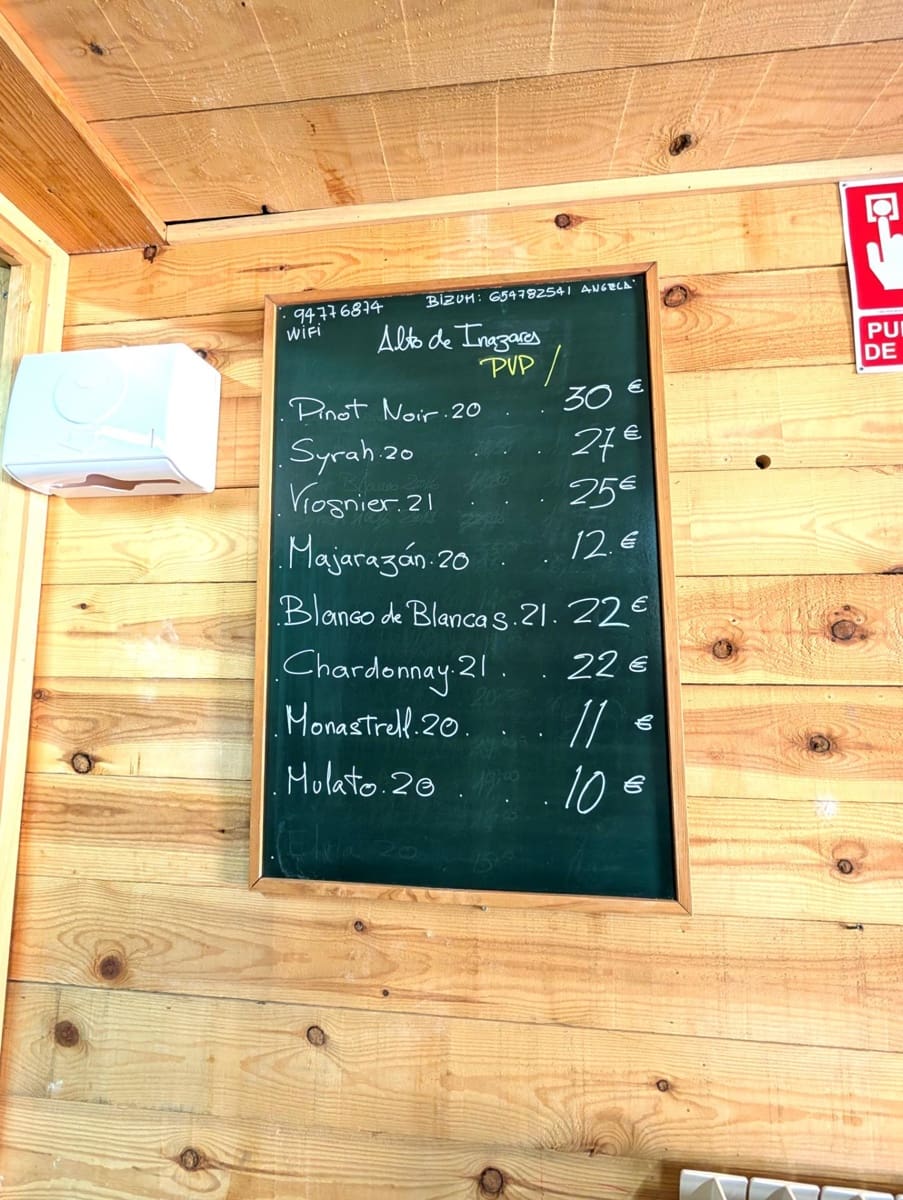 94776874
BIZUM: 654782541 ANGELA
WiFi
Alto de Inazares
PVP /
. Pinot Noir.20 . . 30 €
. Syrah.20 . . . 27 €
. Viognier.21 . . . 25€
. Majarazán.20 . . 12.€
. Blanco de Blancas.21. 22€
. Chardonnay.21 . . 22 €
. Monastrell.20. . . 11 €
. Mulato.20 . . . 10 €
. Elvia 20
PU
DE